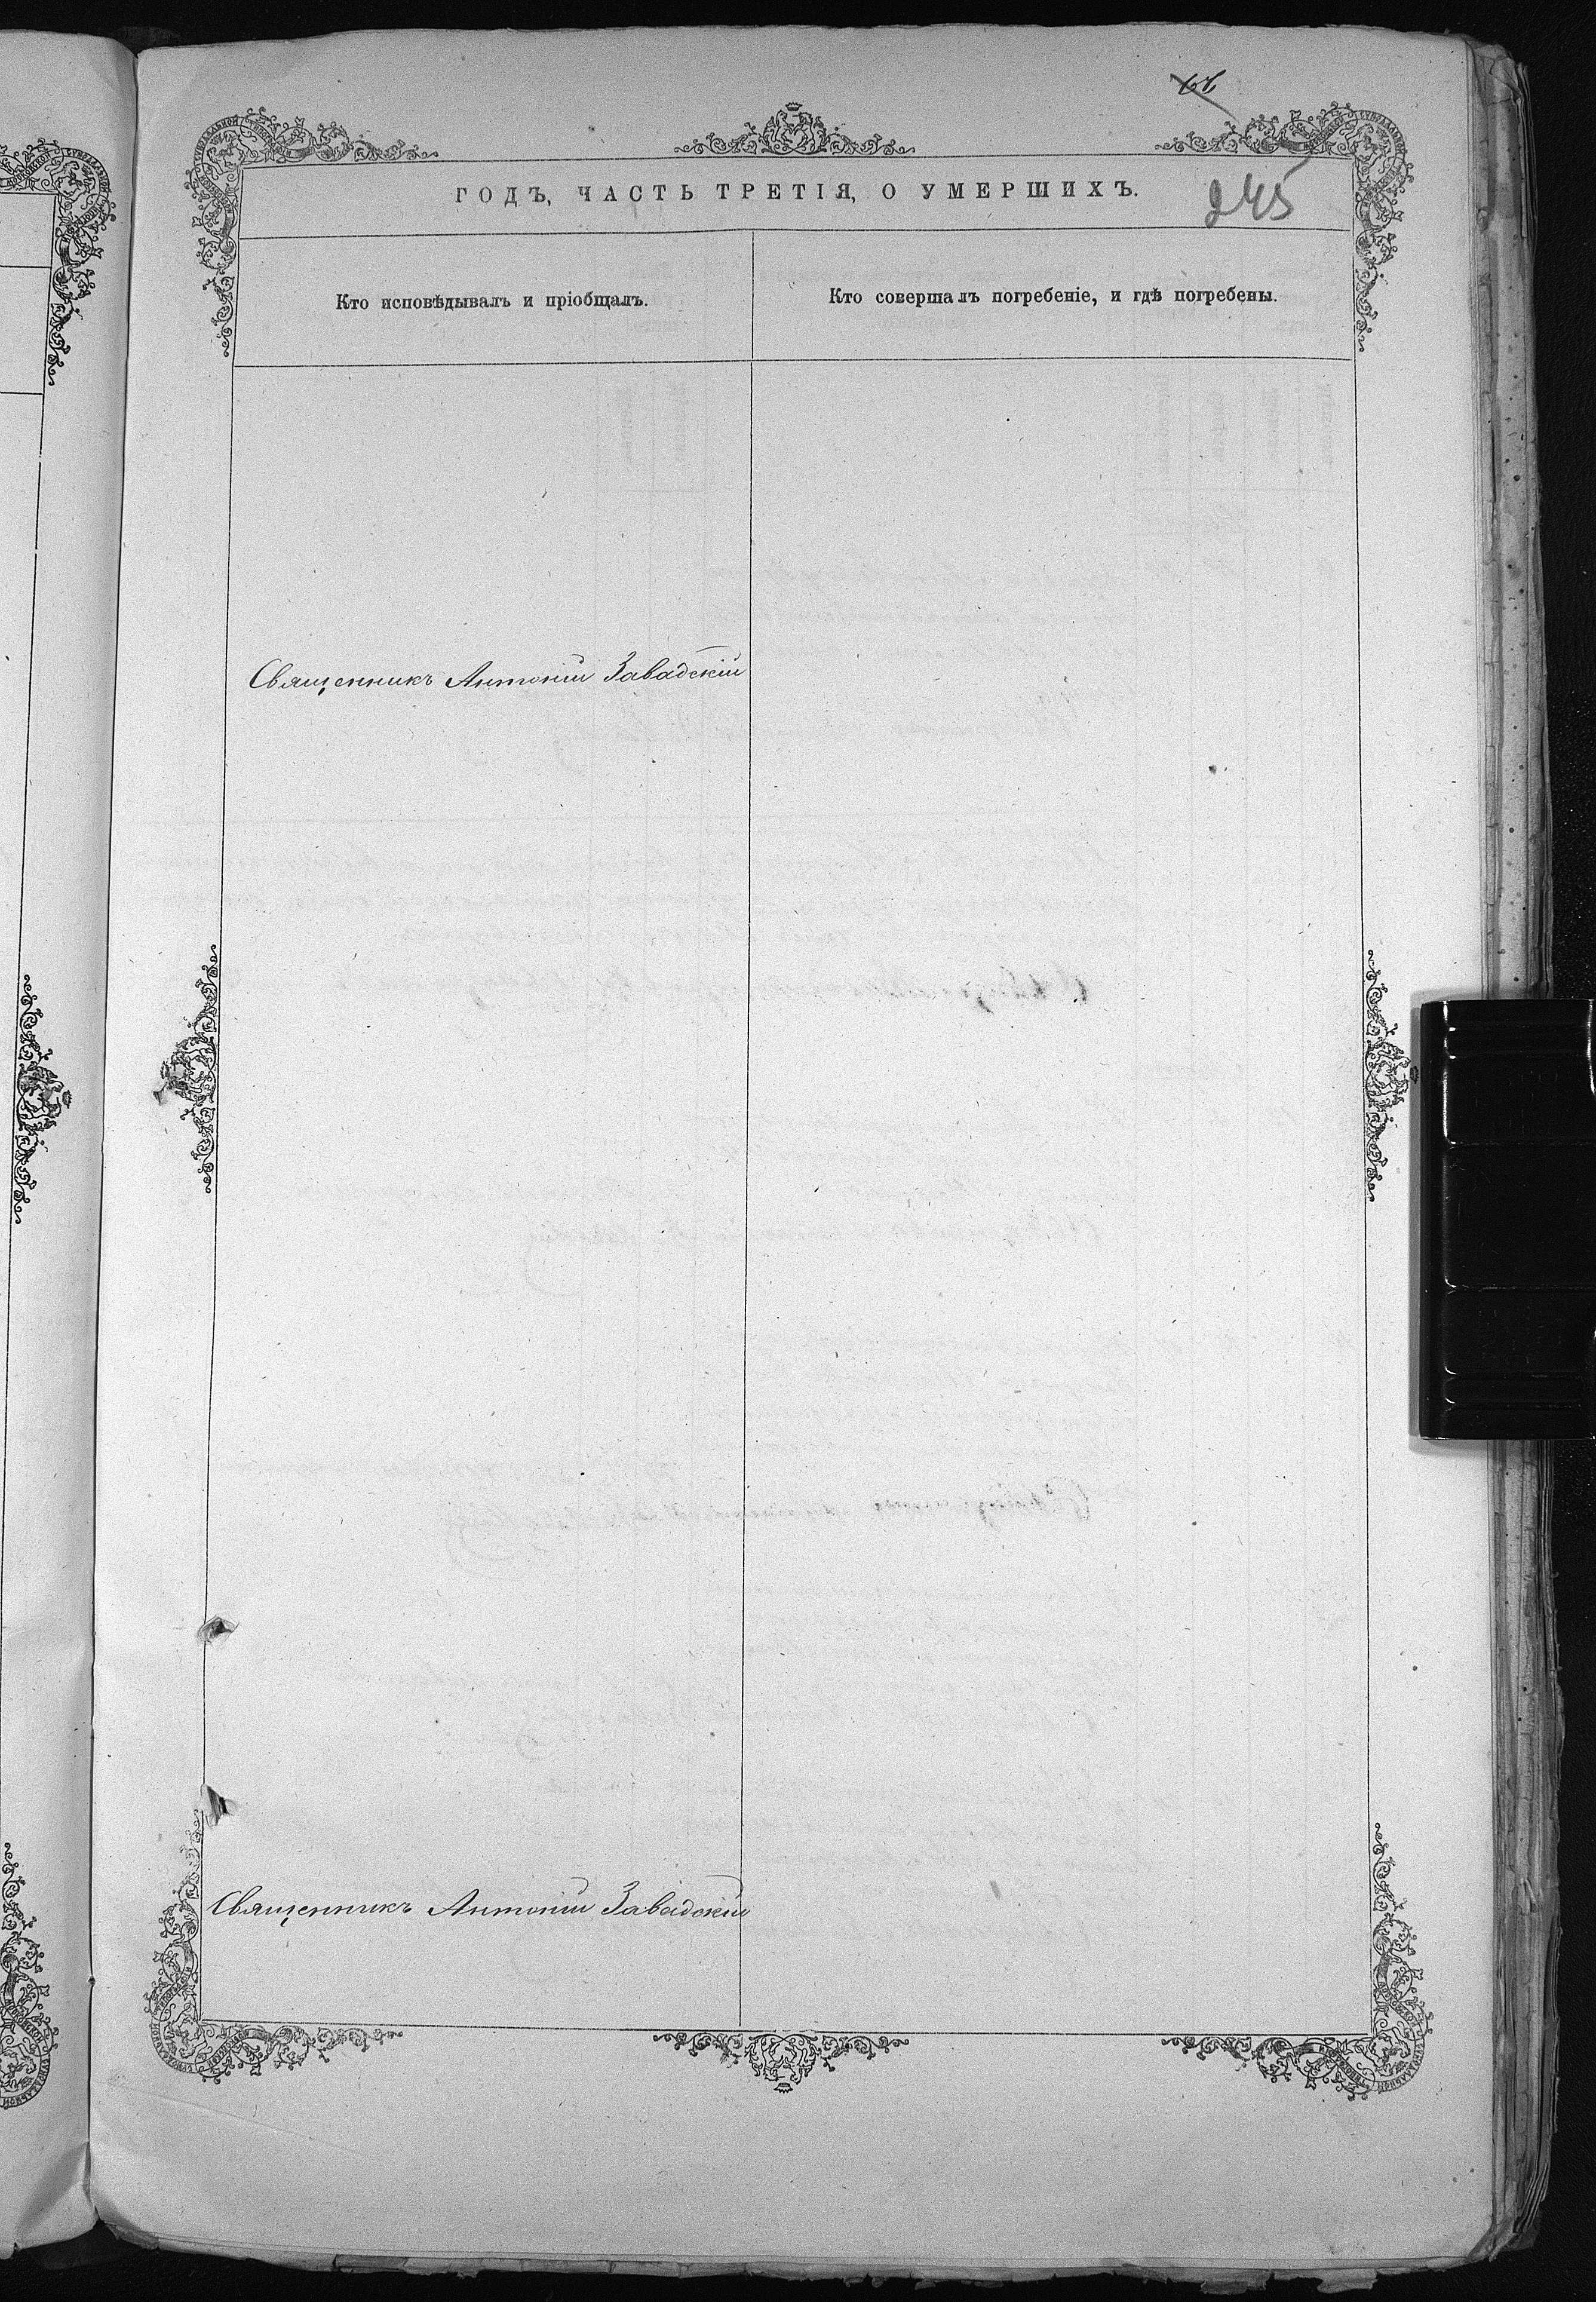 245
ГОДЪ, ЧАСТЬ ТРЕТІЯ, О УМЕРШИХЪ.
Кто исповѣдывалъ и пріобщалъ.
Кто совершалъ погребеніе, и гдѣ погребены.
Священникъ Антоній Завадскій
Священникъ Антоній Завадскій